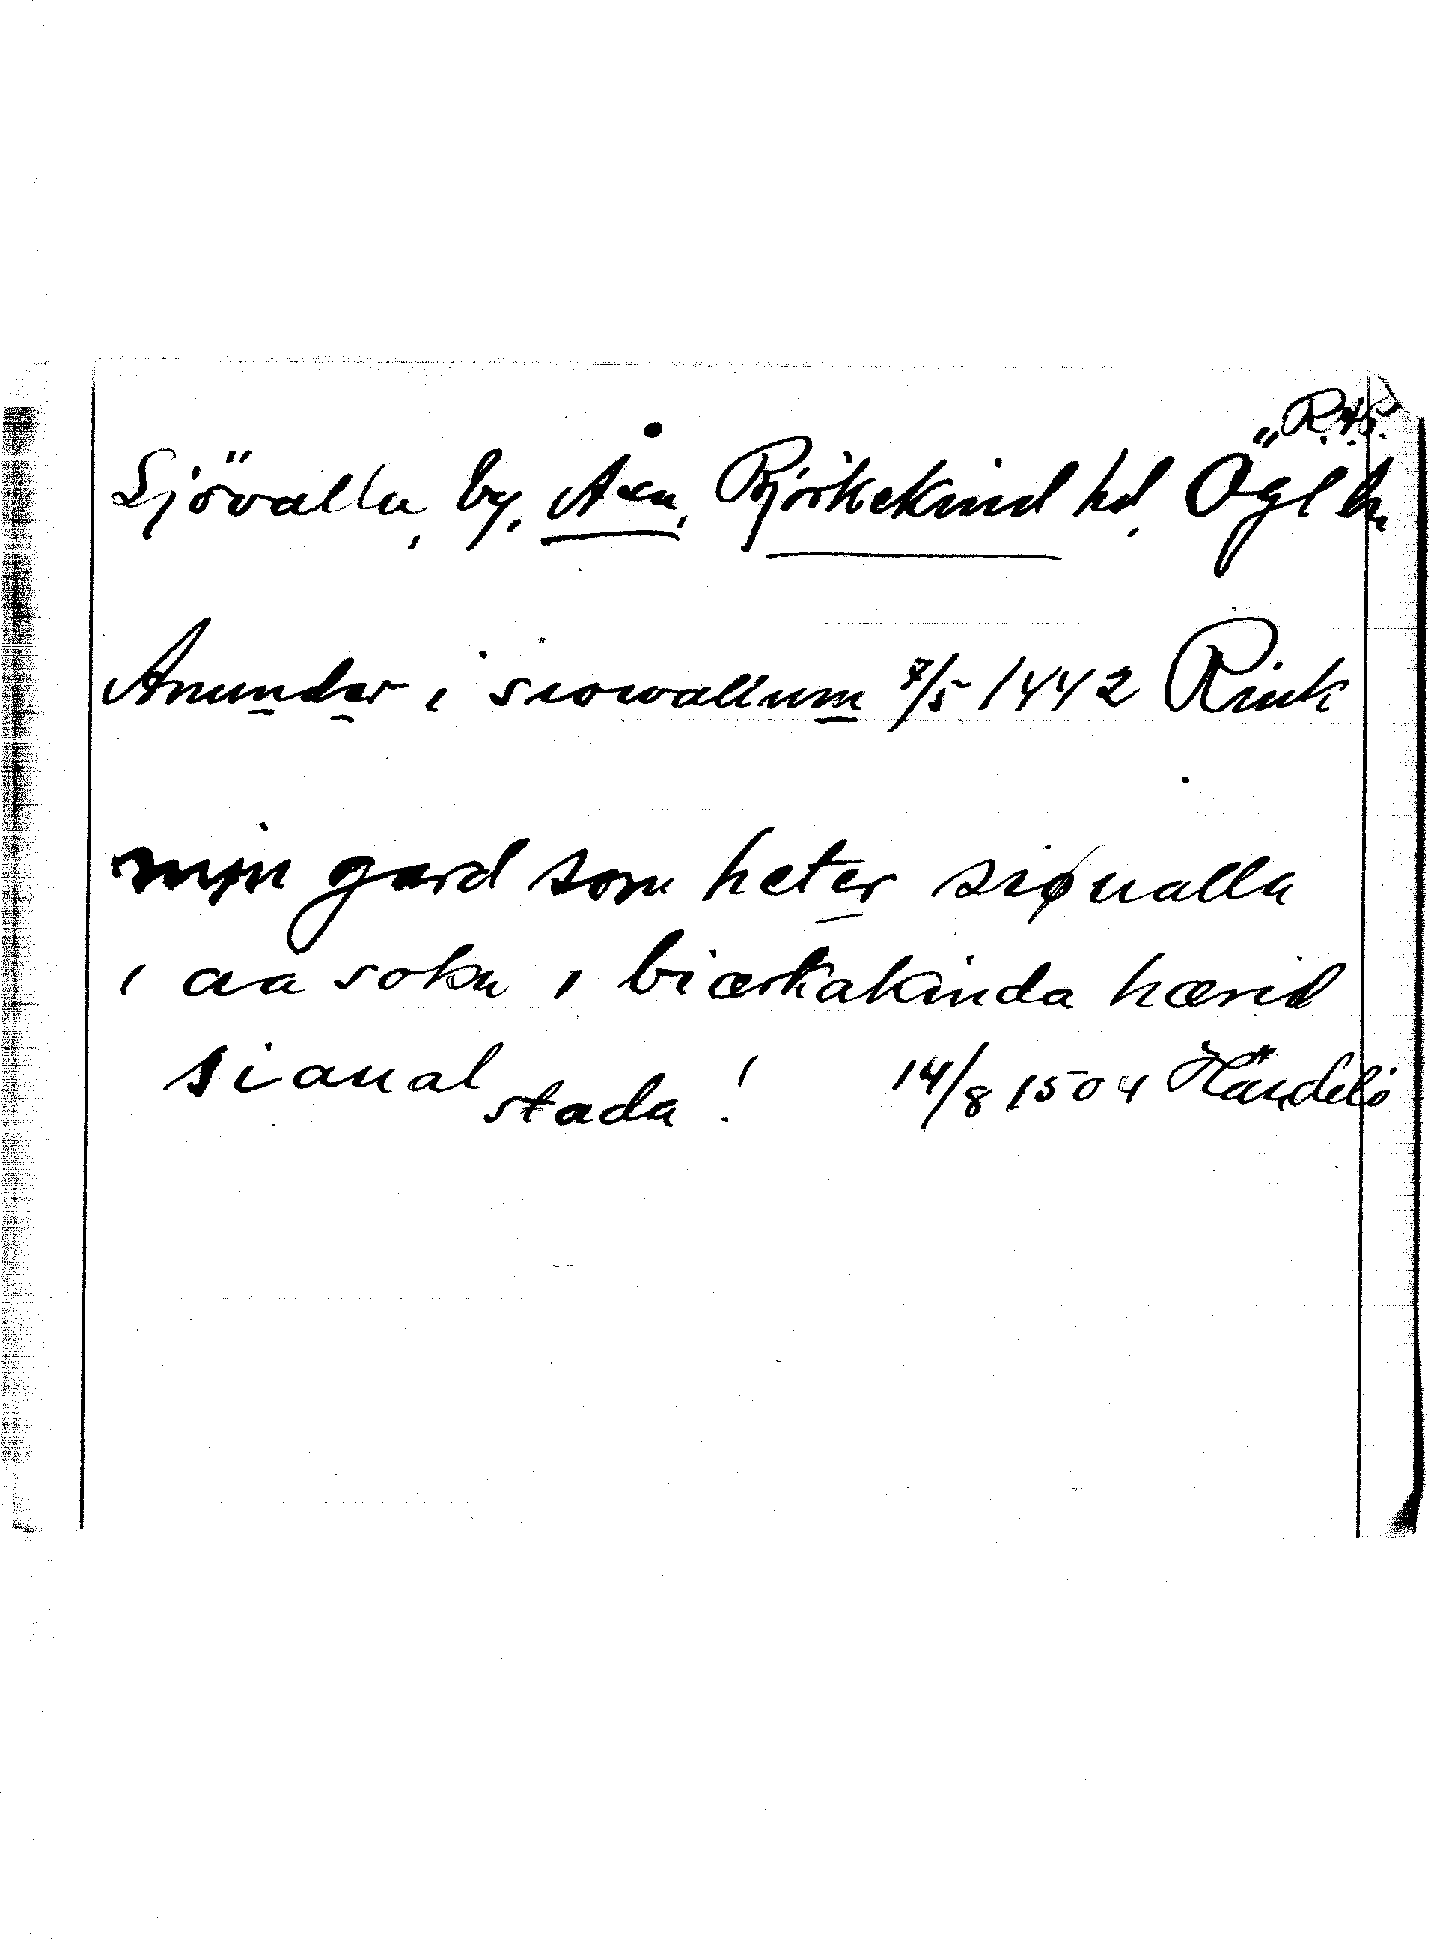 R.A.
Sjövalla, by, Å sn, Björkekind hd, Ögl ln
Anunder i siowallum 7/5 1442 Rink
mijn gard som heter siøualla
i aa sokn i biærkakinda hærid
siaual stada ! 14/8 1504 Händelö